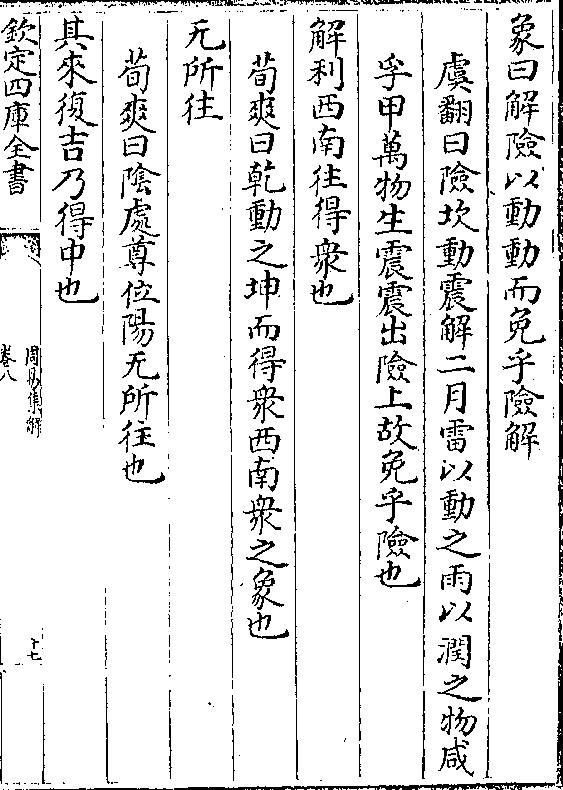 彖曰解險以動動而免乎險解
虞翻曰險坎動震解二月雷以動之雨以潤之物咸
孚甲萬物生震震出險上故免乎險也
解利西南往得衆也
荀爽曰乾動之坤而得衆西南衆之象也
无所往
荀爽曰陰處尊位陽无所往也
其來復吉乃得中也
欽定四庫全書
周易集解
卷八
十七